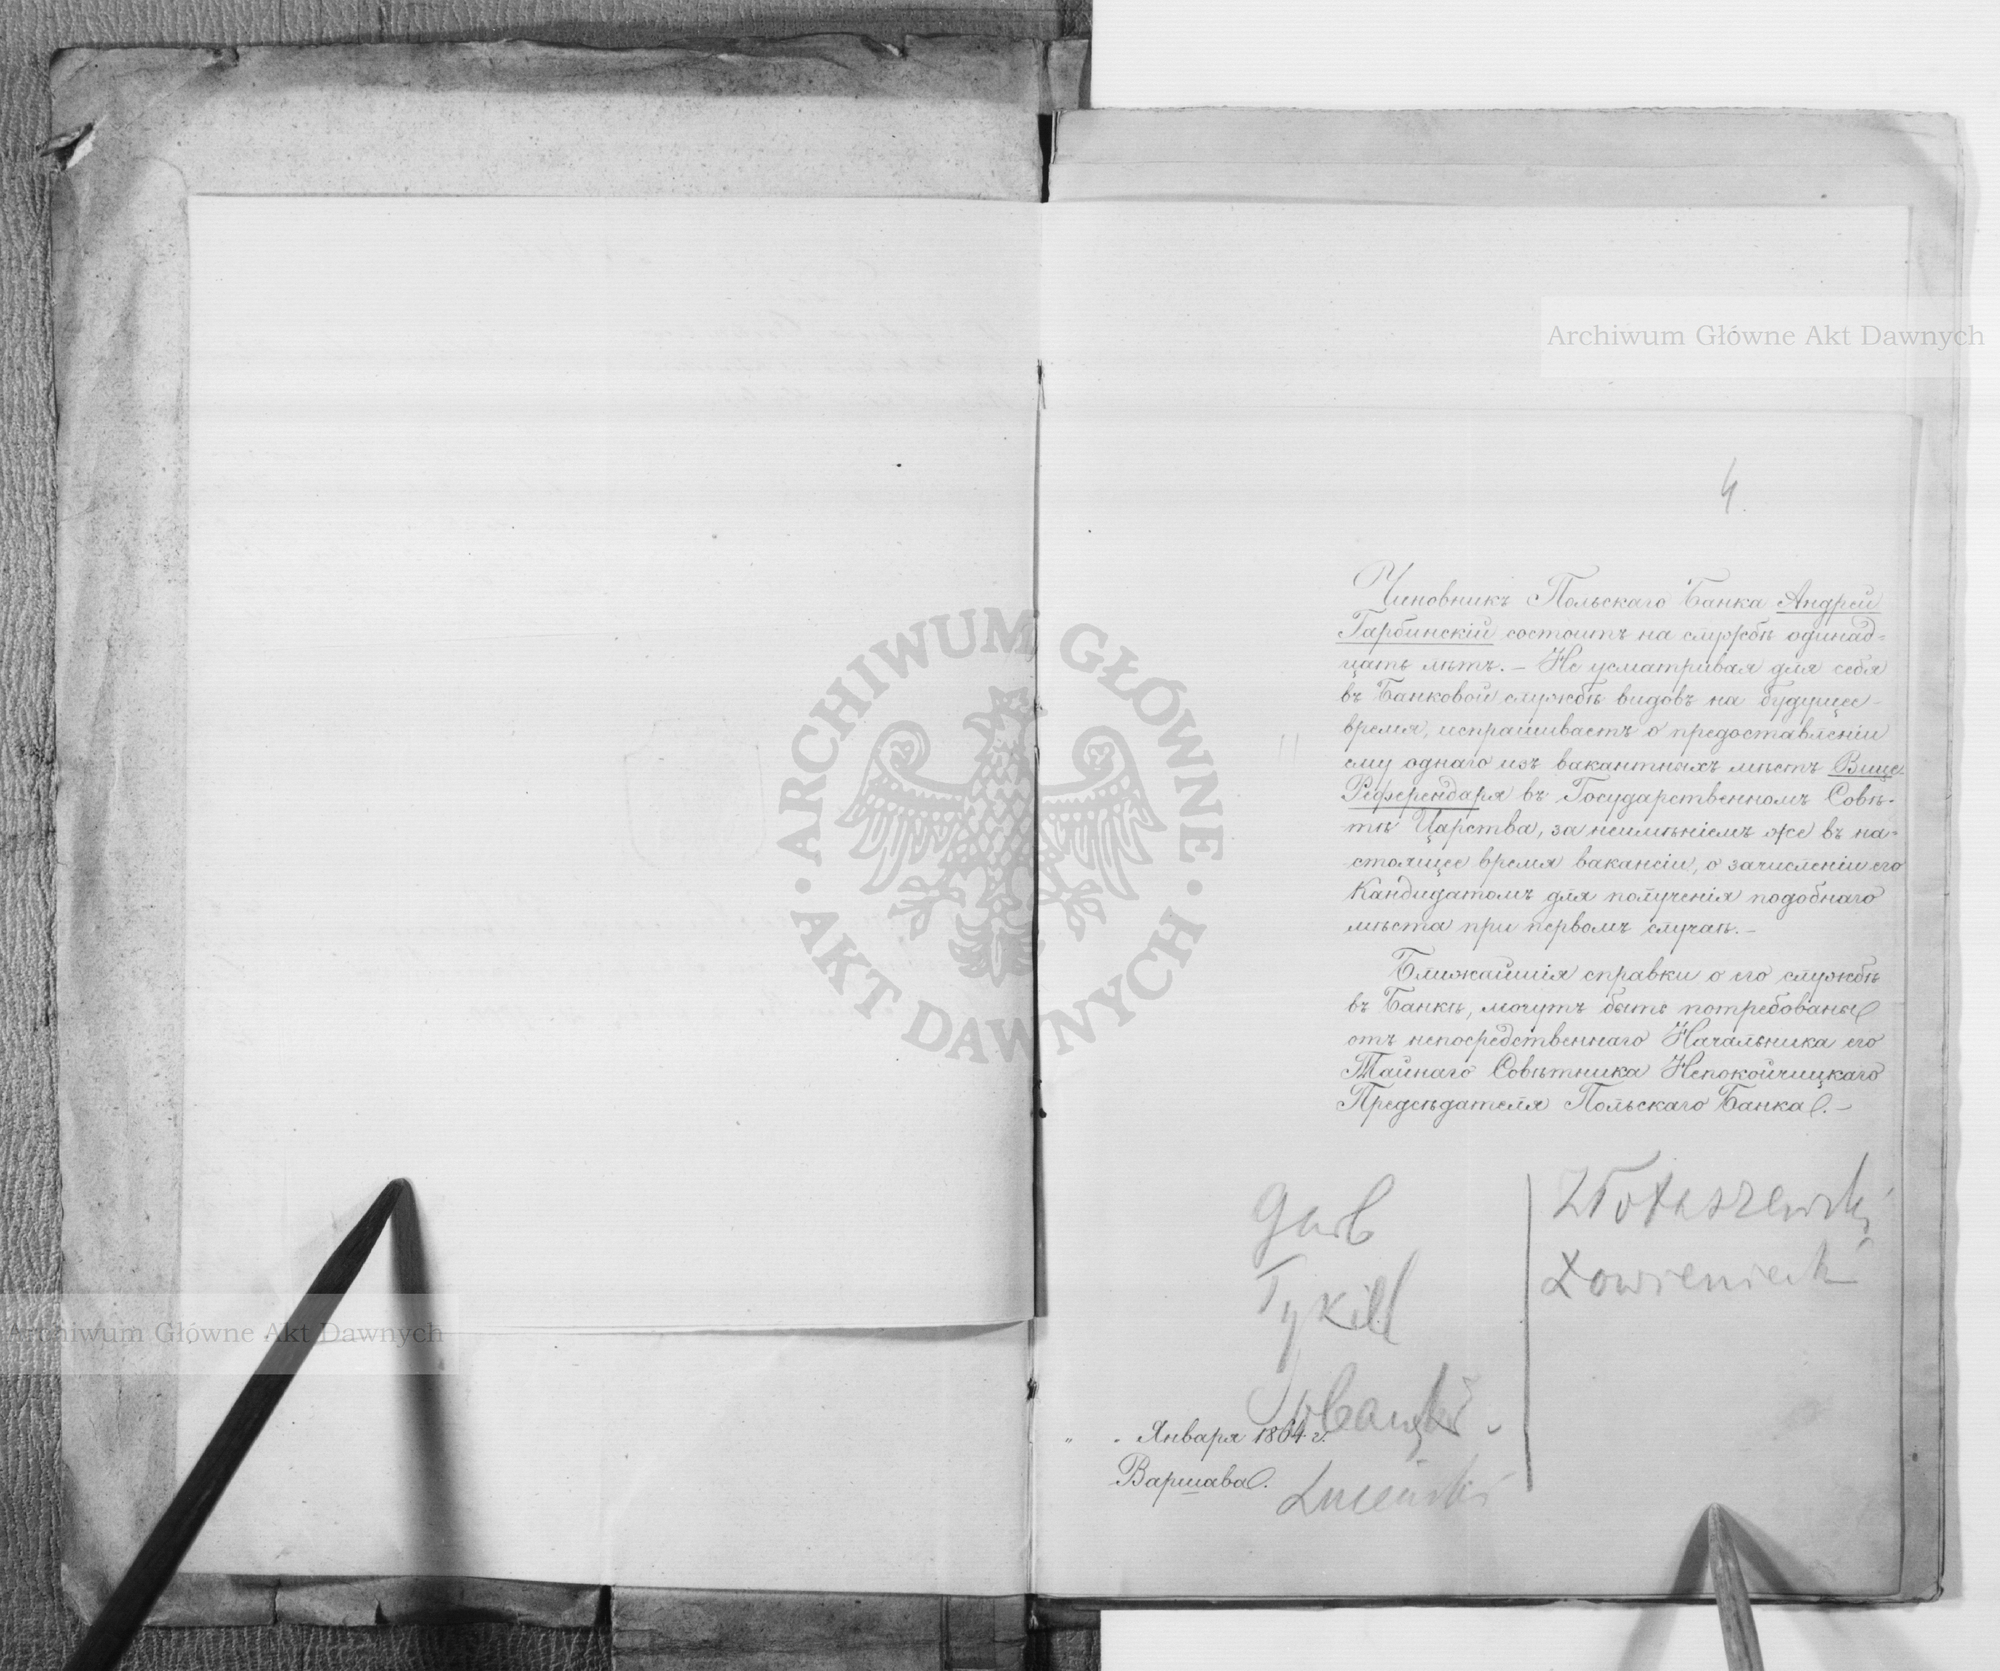 4
Чиновникъ Польскаго Банка Андрей
Гарбинскій состоитъ на службѣ одинад-
цать лѣтъ. — Не усматривая для себя
въ Банковой службѣ видовъ на будущее
время, испрашиваетъ о предоставленіи
ему однаго изъ вакантныхъ мѣстъ Вице
Референдаря въ Государственномъ Совѣ-
тѣ Царства, за неимѣніемъ же въ на-
стоящее время вакансіи, о зачисленіи его
Кандидатомъ для полученія подобнаго
мѣста при первомъ случаѣ. —
Ближайшія справки о его службѣ
въ Банкѣ, могутъ быть потребованы
отъ непосредственнаго Начальника его
Тайнаго Совѣтника Непокойчицкаго
Предсѣдателя Польскаго Банка. —
Garb
Tykell
" " Января 1864 г.
Варшава.
Łuceński
Złotaszewski
Łowieniecki
Archiwum Główne Akt Dawnych
Archiwum Główne Akt Dawnych
ARCHIWUM GŁÓWNE
AKT DAWNYCH